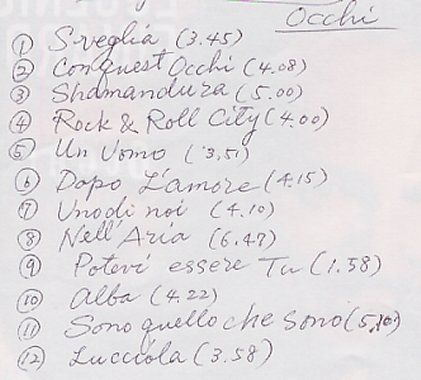 Occhi
① Sveglia (3.45)
② Conquest Occhi (4.08)
③ Shamandura (5.00)
④ Rock & Roll City (4.00)
⑤ Un Uomo (3,51)
⑥ Dopo L'amore (4.15)
⑦ Uno di noi (4.10)
⑧ Nell'Aria (6.47)
⑨ Potevi essere Tu (1.58)
⑩ Alba (4.22)
⑪ Sono quello che sono (5,10)
⑫ Lucciola (3.58)